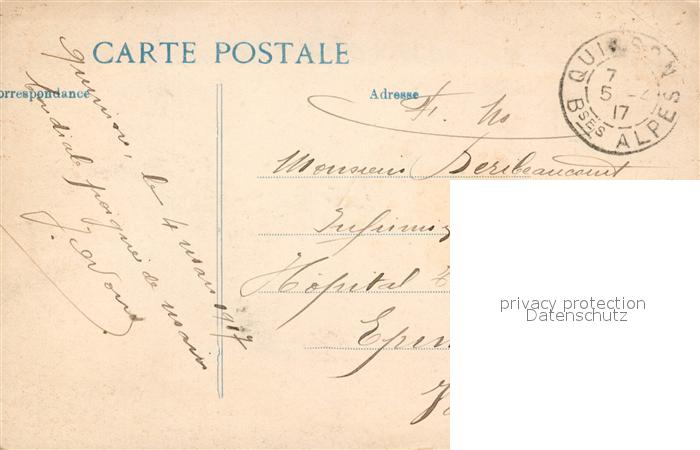 CARTE POSTALE
Correspondance
Adresse
Quinson, le 4 mars 1917
Cordiale poignée de main
F. M.
Monsieur Deribeaucourt
Infirmi
Hôpital
Eper
QUINSON
7
5 - 4
17
BSES ALPES
privacy protection
Datenschutz